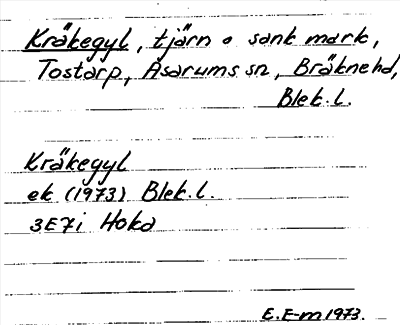 Kråkegyl, tjärn o sank mark,
Tostarp, Asarums sn, Bräknehd,
Blek.l.
Kråkegyl
ek (1973) Blek.l.
3E7i Hoka
E.E-m 1973.